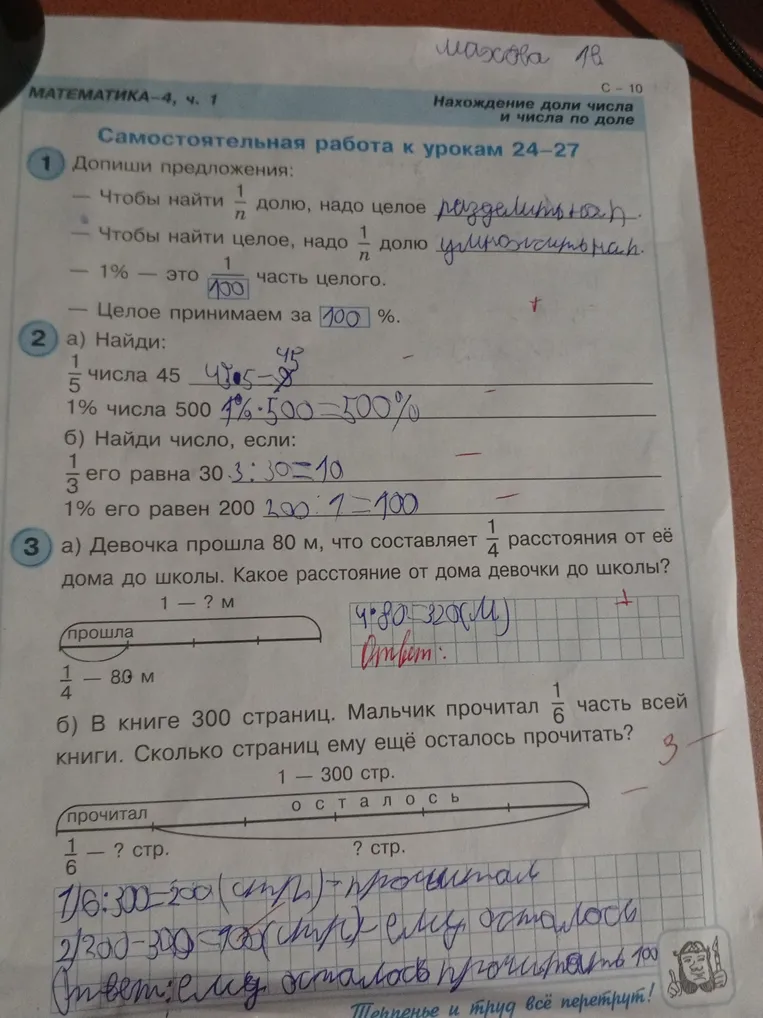 Махова 1в
С – 10
МАТЕМАТИКА–4, ч. 1
Нахождение доли числа
и числа по доле
Самостоятельная работа к урокам 24–27
1 Допиши предложения:
— Чтобы найти 1/n долю, надо целое разделить на n.
— Чтобы найти целое, надо 1/n долю умножить на n.
— 1% — это 1/100 часть целого.
— Целое принимаем за 100 %.
+
2 а) Найди:
1/5 числа 45 45•5=45
1% числа 500 1%·500=500%
б) Найди число, если:
1/3 его равна 30 3:30=10
1% его равен 200 200:1=100
3 а) Девочка прошла 80 м, что составляет 1/4 расстояния от её
дома до школы. Какое расстояние от дома девочки до школы?
1 — ? м
прошла
1/4 — 80 м
4•80=320(м)
+
Ответ:
б) В книге 300 страниц. Мальчик прочитал 1/6 часть всей
книги. Сколько страниц ему ещё осталось прочитать?
3 –
1 — 300 стр.
прочитал
осталось
1/6 — ? стр.
? стр.
1)6:300=200(стр)-прочитал
2)200-300=100(стр)-ему осталось
Ответ: ему осталось прочитать 100
Терпенье и труд всё перетрут!